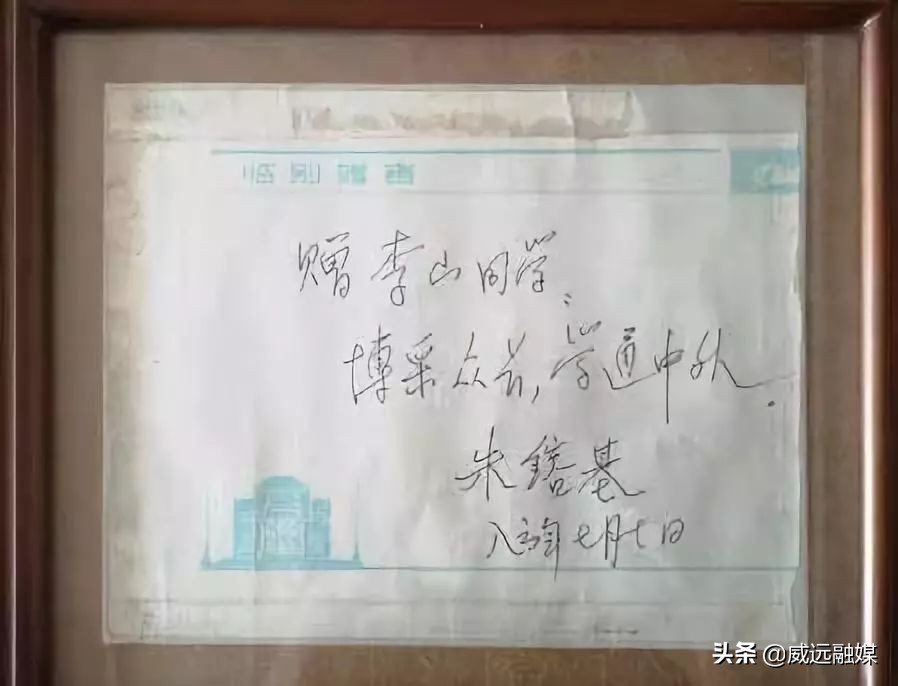 临别赠言
赠李山同学:
博采众长,学通中外.
朱镕基
八六年七月七日
头条 @威远融媒